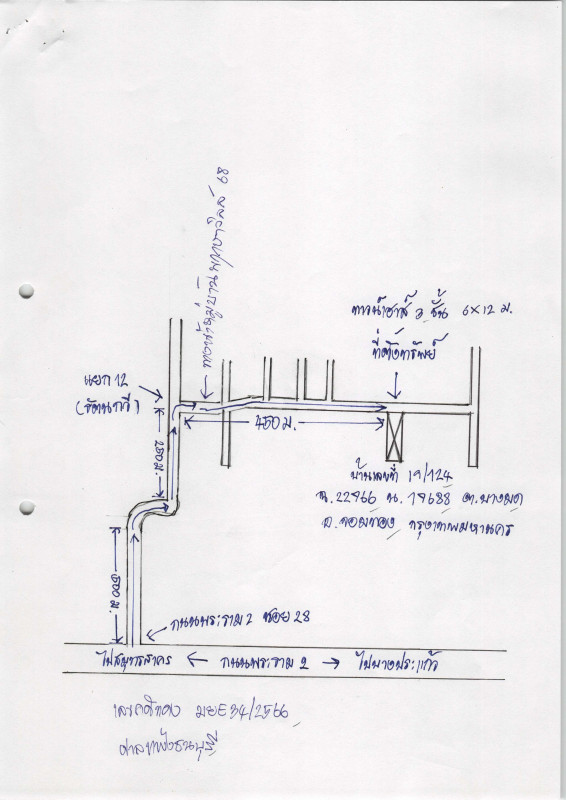 ทางเข้าหมู่บ้านพฤกษาวิลล์ 68
ทาวน์เฮาส์ 2 ชั้น 6x12 ม.
ที่ตั้งทรัพย์
แยก 12
(รัตนกวี)
450 ม.
250 ม.
บ้านเลขที่ 19/124
ฉ.22966 น.19688 ต.บางมด
อ.จอมทอง กรุงเทพมหานคร
600 ม.
ถนนพระราม 2 ซอย 28
ไปสมุทรสาคร ← ถนนพระราม 2 → ไปบางปะแก้ว
เลขคดีแดง มยE34/2566
ศาลแพ่งธนบุรี